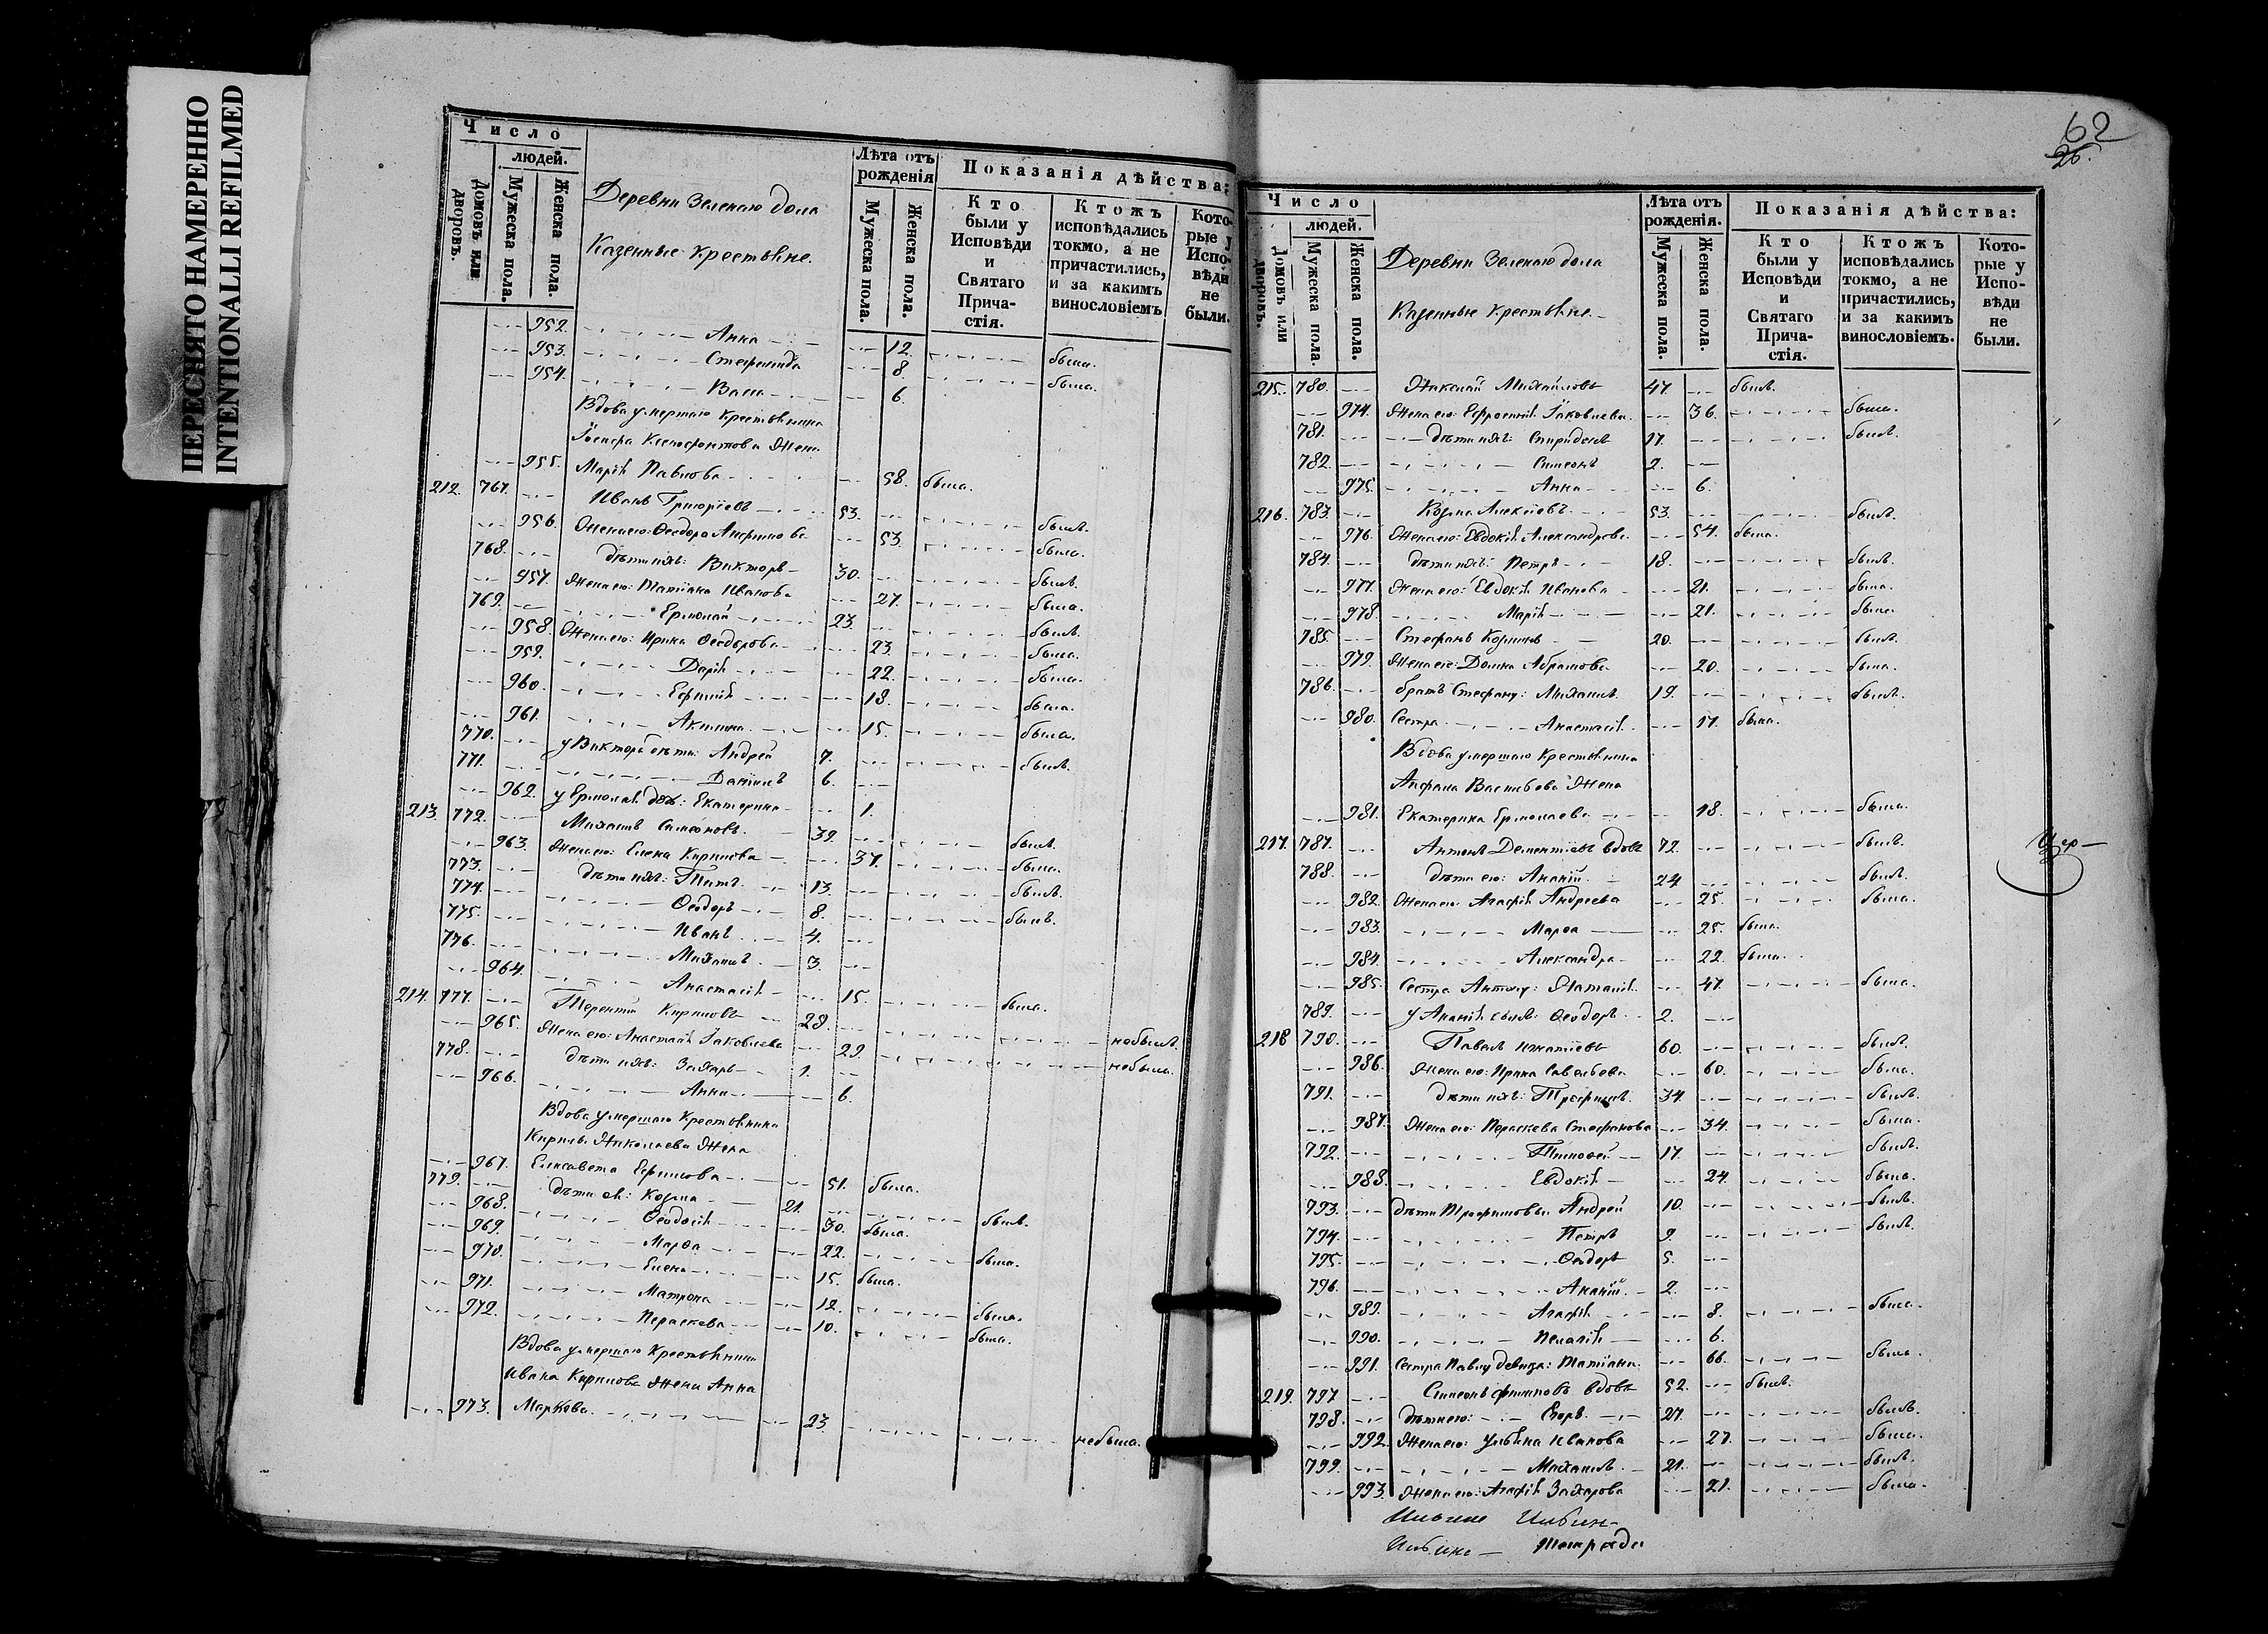 ПЕРЕСНЯТО НАМЕРЕННО
INTENTIONALLI REFILMED
Число
людей.
Домовъ или дворовъ.
Мужеска пола.
Женска пола.
Деревни Зеленаго дола
Казенные Крестьяне.
Лѣта отъ рожденія
Мужеска пола.
Женска пола.
Показанія дѣйства:
Кто были у Исповѣди и Святаго Прича-стія.
Ктожъ исповѣдались токмо, а не причастились, и за какимъ винословіемъ
Кото-рые у Испо-вѣди не были.
952. Анна 12. была.
953. Стефанида 8. была.
954. Васса 6.
Вдова умершаго Крестьянина
Іосифа Ксенофонтова Жена
955. Марія Павлова 58. была.
212. 767. Иванъ Григоріевъ 53. былъ.
956. Жена его: Ѳеодора 53. была.
768. дѣти ихъ: Викторъ 30. былъ.
957. Жена его: Татіана Иванова 27. была.
769. Ермолай 23. былъ.
958. Жена его: Ирина Ѳеодорова 23. была.
959. Дарія 22. была.
960. Ефимія 18. была.
961. Акилина 15. была.
770. у Виктора дѣти: Андрей 7. былъ.
771. Даніилъ 6.
962. у Ермолая дочь: Екатерина 1.
213. 772. Михаилъ Симеоновъ 39. былъ.
963. Жена его: Елена Кирилова 37. была.
773. дѣти ихъ: Титъ 13. былъ.
774. Ѳеодоръ 8. былъ.
775. Иванъ 4.
776. Михаилъ 3.
964. Анастасія 15. была.
214. 777. Терентій Кириловъ 28. небылъ.
965. Жена его: Анастасія Іаковлева 29. небыла.
778. дѣти ихъ: Захаръ 1.
966. Анна 6.
Вдова умершаго Крестьянина
Кирилы Николаева Жена
967. Елисавета Ефимова 51. была.
779. дѣти ея: Козма 21. былъ.
968. Ѳеодосія 30. была.
969. Марѳа 22. была.
970. Елена 15. была.
971. Матрона 12. была.
972. Параскева 10. была.
Вдова умершаго Крестьянина
Ивана Кирилова Жена Анна
973. Маркова 23. небыла.
62
26.
Число
людей.
Домовъ или дворовъ.
Мужеска пола.
Женска пола.
Деревни Зеленаго дола
Казенные Крестьяне.
Лѣта отъ рожденія.
Мужеска пола.
Женска пола.
Показанія дѣйства:
Кто были у Исповѣди и Святаго Прича-стія.
Ктожъ исповѣдались токмо, а не причастились, и за какимъ винословіемъ.
Кото-рые у Испо-вѣди не были.
215. 780. Николай Михайловъ 47. былъ.
974. Жена его: Ефросинія Іаковлева 36. была.
781. дѣти ихъ: Спиридонъ 17. былъ.
782. Симеонъ 2.
975. Анна 6.
216. 783. Козма Алексіевъ 53. былъ.
976. Жена его: Евдокія Александрова 54. была.
784. дѣти ихъ: Петръ 18. былъ.
977. Жена его: Евдокія Иванова 21. была.
978. Марія 21. была.
785. Стефанъ Козминъ 20. былъ.
979. Жена его: Домна Абрамова 20. была.
786. братъ Стефану: Михаилъ 19. былъ.
980. Сестра Анастасія 17. была.
Вдова умершаго Крестьянина
Васильева Жена
981. Екатерина Ермолаева 48. была.
217. 787. Антонъ Дементіевъ вдовъ 72. былъ. Чер-
788. дѣти его: Ананія 24 былъ.
982. Жена его: Агафія Андреева 25. была.
983. Марѳа 25. была.
984. Александра 22. была.
985. Сестра Антону: Наталія 47. была.
789. у Ананія сынъ: Ѳеодоръ 2.
218 790. Павелъ Игнатіевъ 60. былъ.
986. Жена его: Ирина Савельева 60. была.
791. дѣти ихъ: Трофимъ 34. былъ.
987. Жена его: Параскева Стефанова 34. была.
792. Тимоѳей 17. былъ.
988. Евдокія 24. была.
793. дѣти Трофимовы: Андрей 10. былъ.
794. Петръ 9. былъ.
795. Ѳеодоръ 5.
796. Ананія 2.
989. Агафія 8. была.
990. Пелагія 6.
991. Сестра Павлу девица: Татіана 66. была.
219. 797 Симеонъ Филиповъ вдовъ 52. былъ.
798. дѣти его: Егоръ 27. былъ.
992. Жена его: Ульяна Иванова 27. была.
799. Михаилъ 21. былъ.
993. Жена его: Агафія Захарова 21. была.